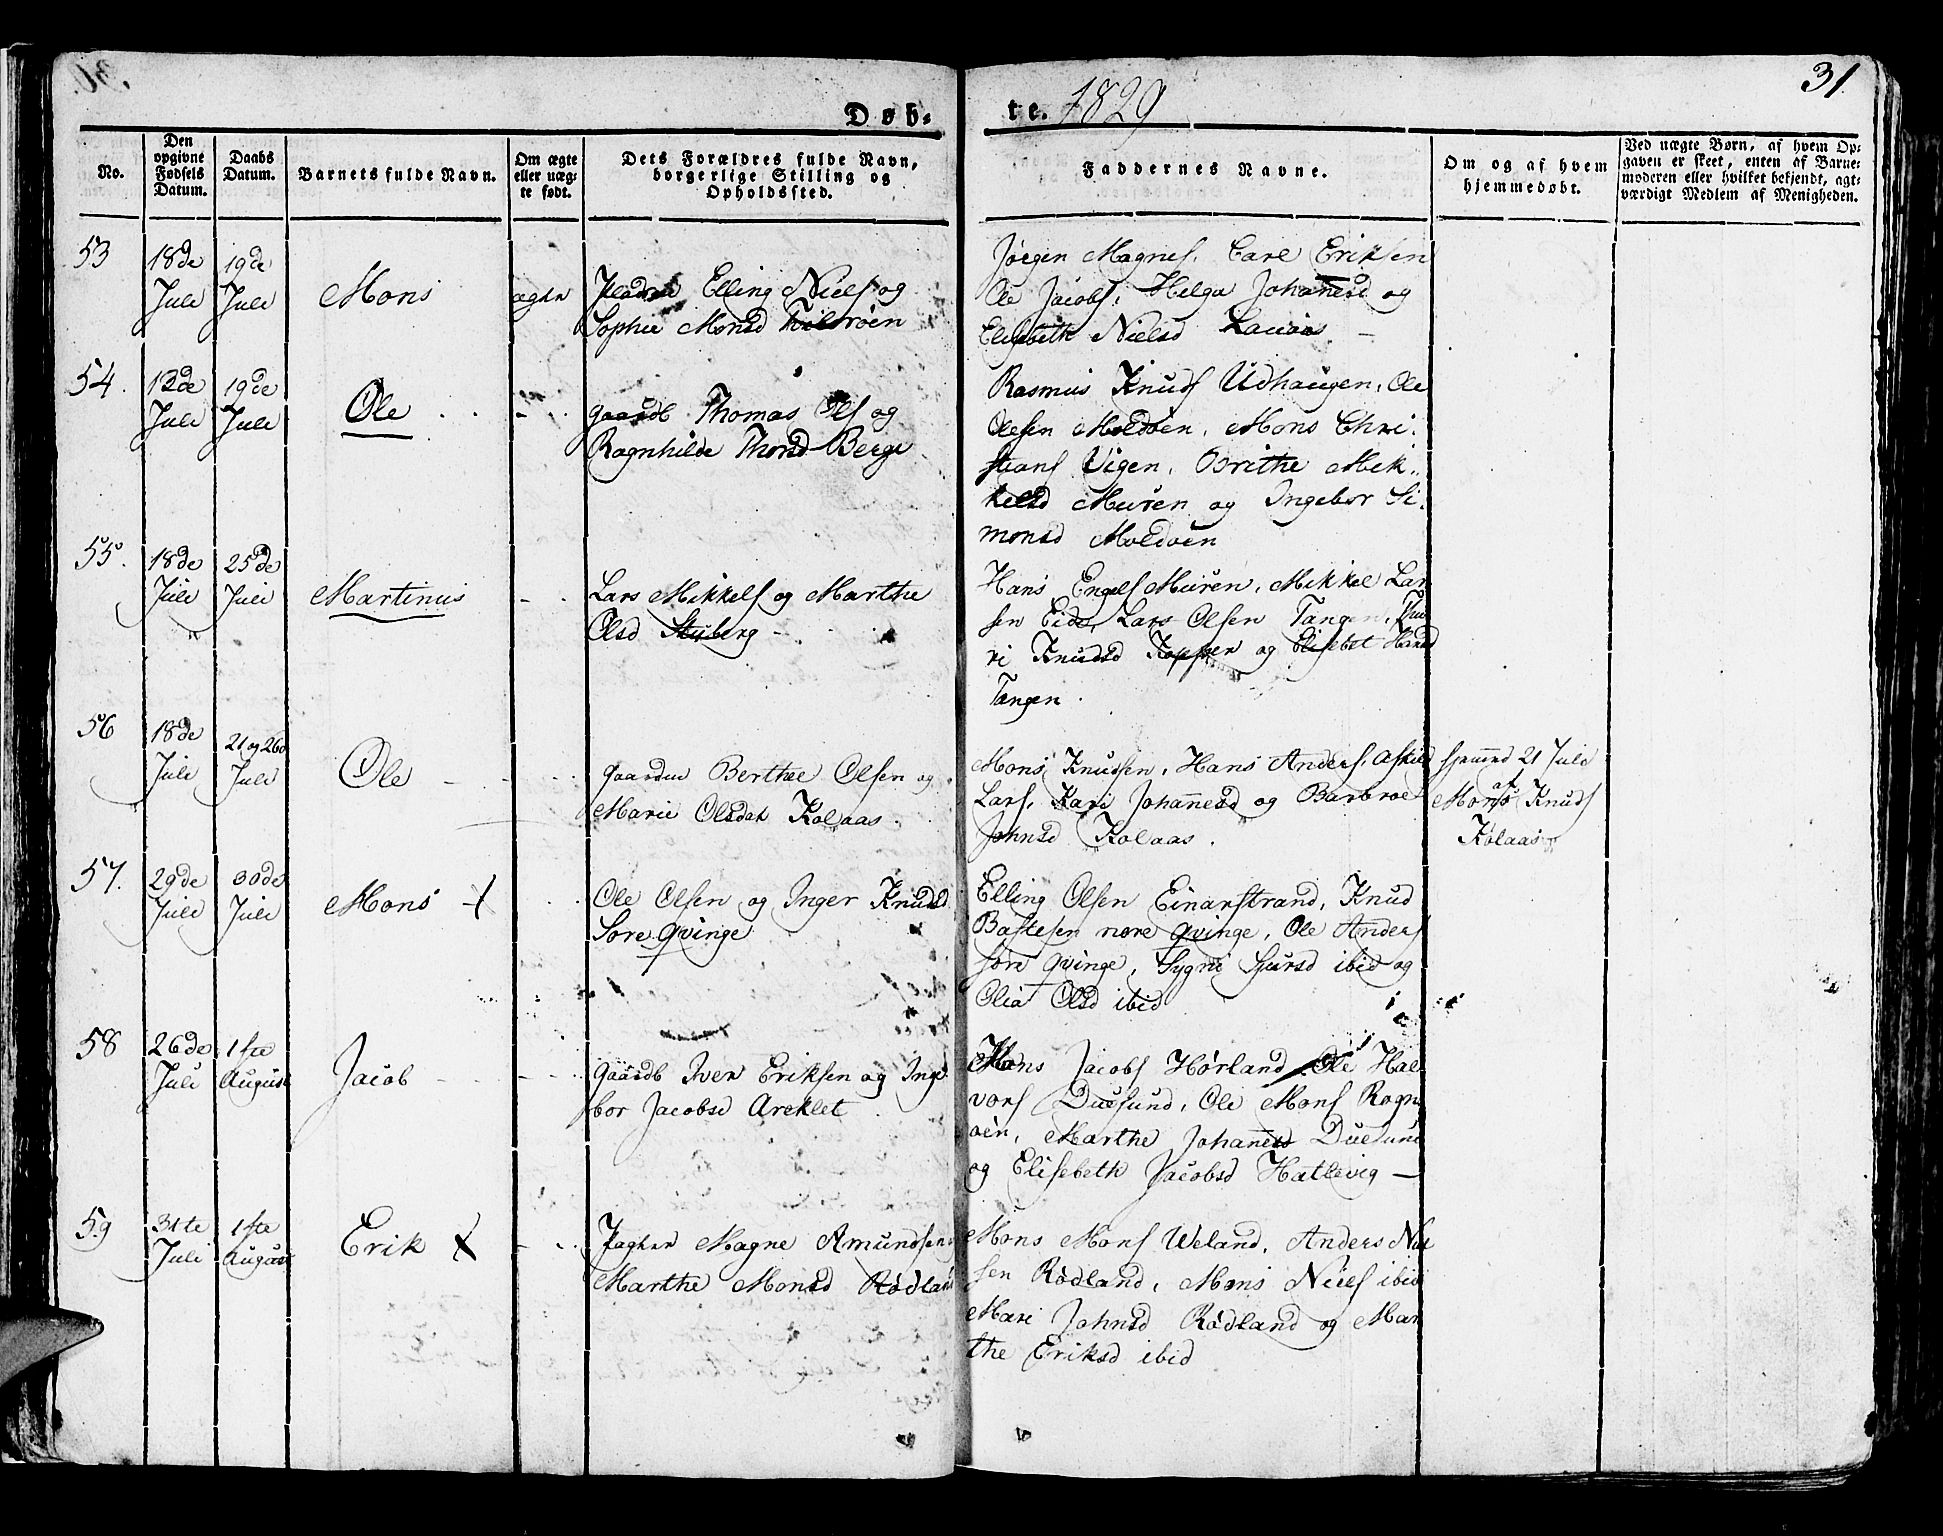 31
Døb-
te. 1829
No.
Den opgivne Fødsels Datum.
Daabs Datum.
Barnets fulde Navn.
Om ægte eller uægte født.
Dets Forældres fulde Navn, borgerlige Stilling og Opholdssted.
Faddernes Navne.
Om og af hvem hjemmedøbt.
Ved uægte Børn, af hvem Opgaven er skeet, enten af Barnemoderen eller hvilket bekjendt, agtværdigt Medlem af Menigheden.
53
18de
Juli
19de
Juli
Mons
ægte
Elling Niels og
Sophie Monsd
Jørgen Magnes, Carl Eriksen
Ole Jacobs, Helga Johanesd og
Elisebeth Nielsd
54.
12de
Juli
19de
Juli
Ole
gaardb Thomas Ols og
Ragnhilde Thorsd Berge
Rasmus Knuds Udhaugen, Ole
Olesen Moldøen, Mons Chri-
stians Vigen, Brithe Mik-
kelsd Muren og Ingebor Si-
monsd Moldøen
55.
18de
Juli
25de
Juli
Martinus
Lars Mikkels og Marthe
Olsd Stuberg
Hans Engels Muren, Mikkel Lar
sen Eide, Lars Olsen Tangen, Thu
ri Knudsd og Elisebet Hansd
Tangen.
56
18de
Juli
21 og 26d
Juli
Ole
gaardm Berthel Olsen og
Marie Olsdat Kolaas.
Mons Knudsen, Hans Anders, Askild
Lars, Kari Johannesd og Barbroe
Johnsd Kolaas.
hjemmd 21 Juli
af
Mons Knuds
Kolaas
57.
29de
Juli
30de
Juli
Mons X
Ole Olsen og Inger Knudsd
Søre Qvinge
Elling Olsen Einarstrand, Knud
Bastesen nøre Qvinge, Ole Anders
søre Qvinge, Sygni Sjursd ibid og
Olia Olsd ibid
58
26de
Juli
1ste
August
Jacob
gaardb Iver Eriksen og Inge
bor Jacobsd Areklet
Mons Jacobs Hørland, Ole Hal
vors Duesund, Ole Mons Rogn
øen, Marthe Johanesd Duesund
og Elisebeth Jacobsd Hatlevig —
59
31te
Juli
1ste
August
Erik X
Magne Amundsen
Marthe Monsd Rødland
Mons Mons Weland, Anders Niel
sen Rødland, Mons Niels ibid
Mari Johnsd Rødland og Mar
the Eriksd ibid